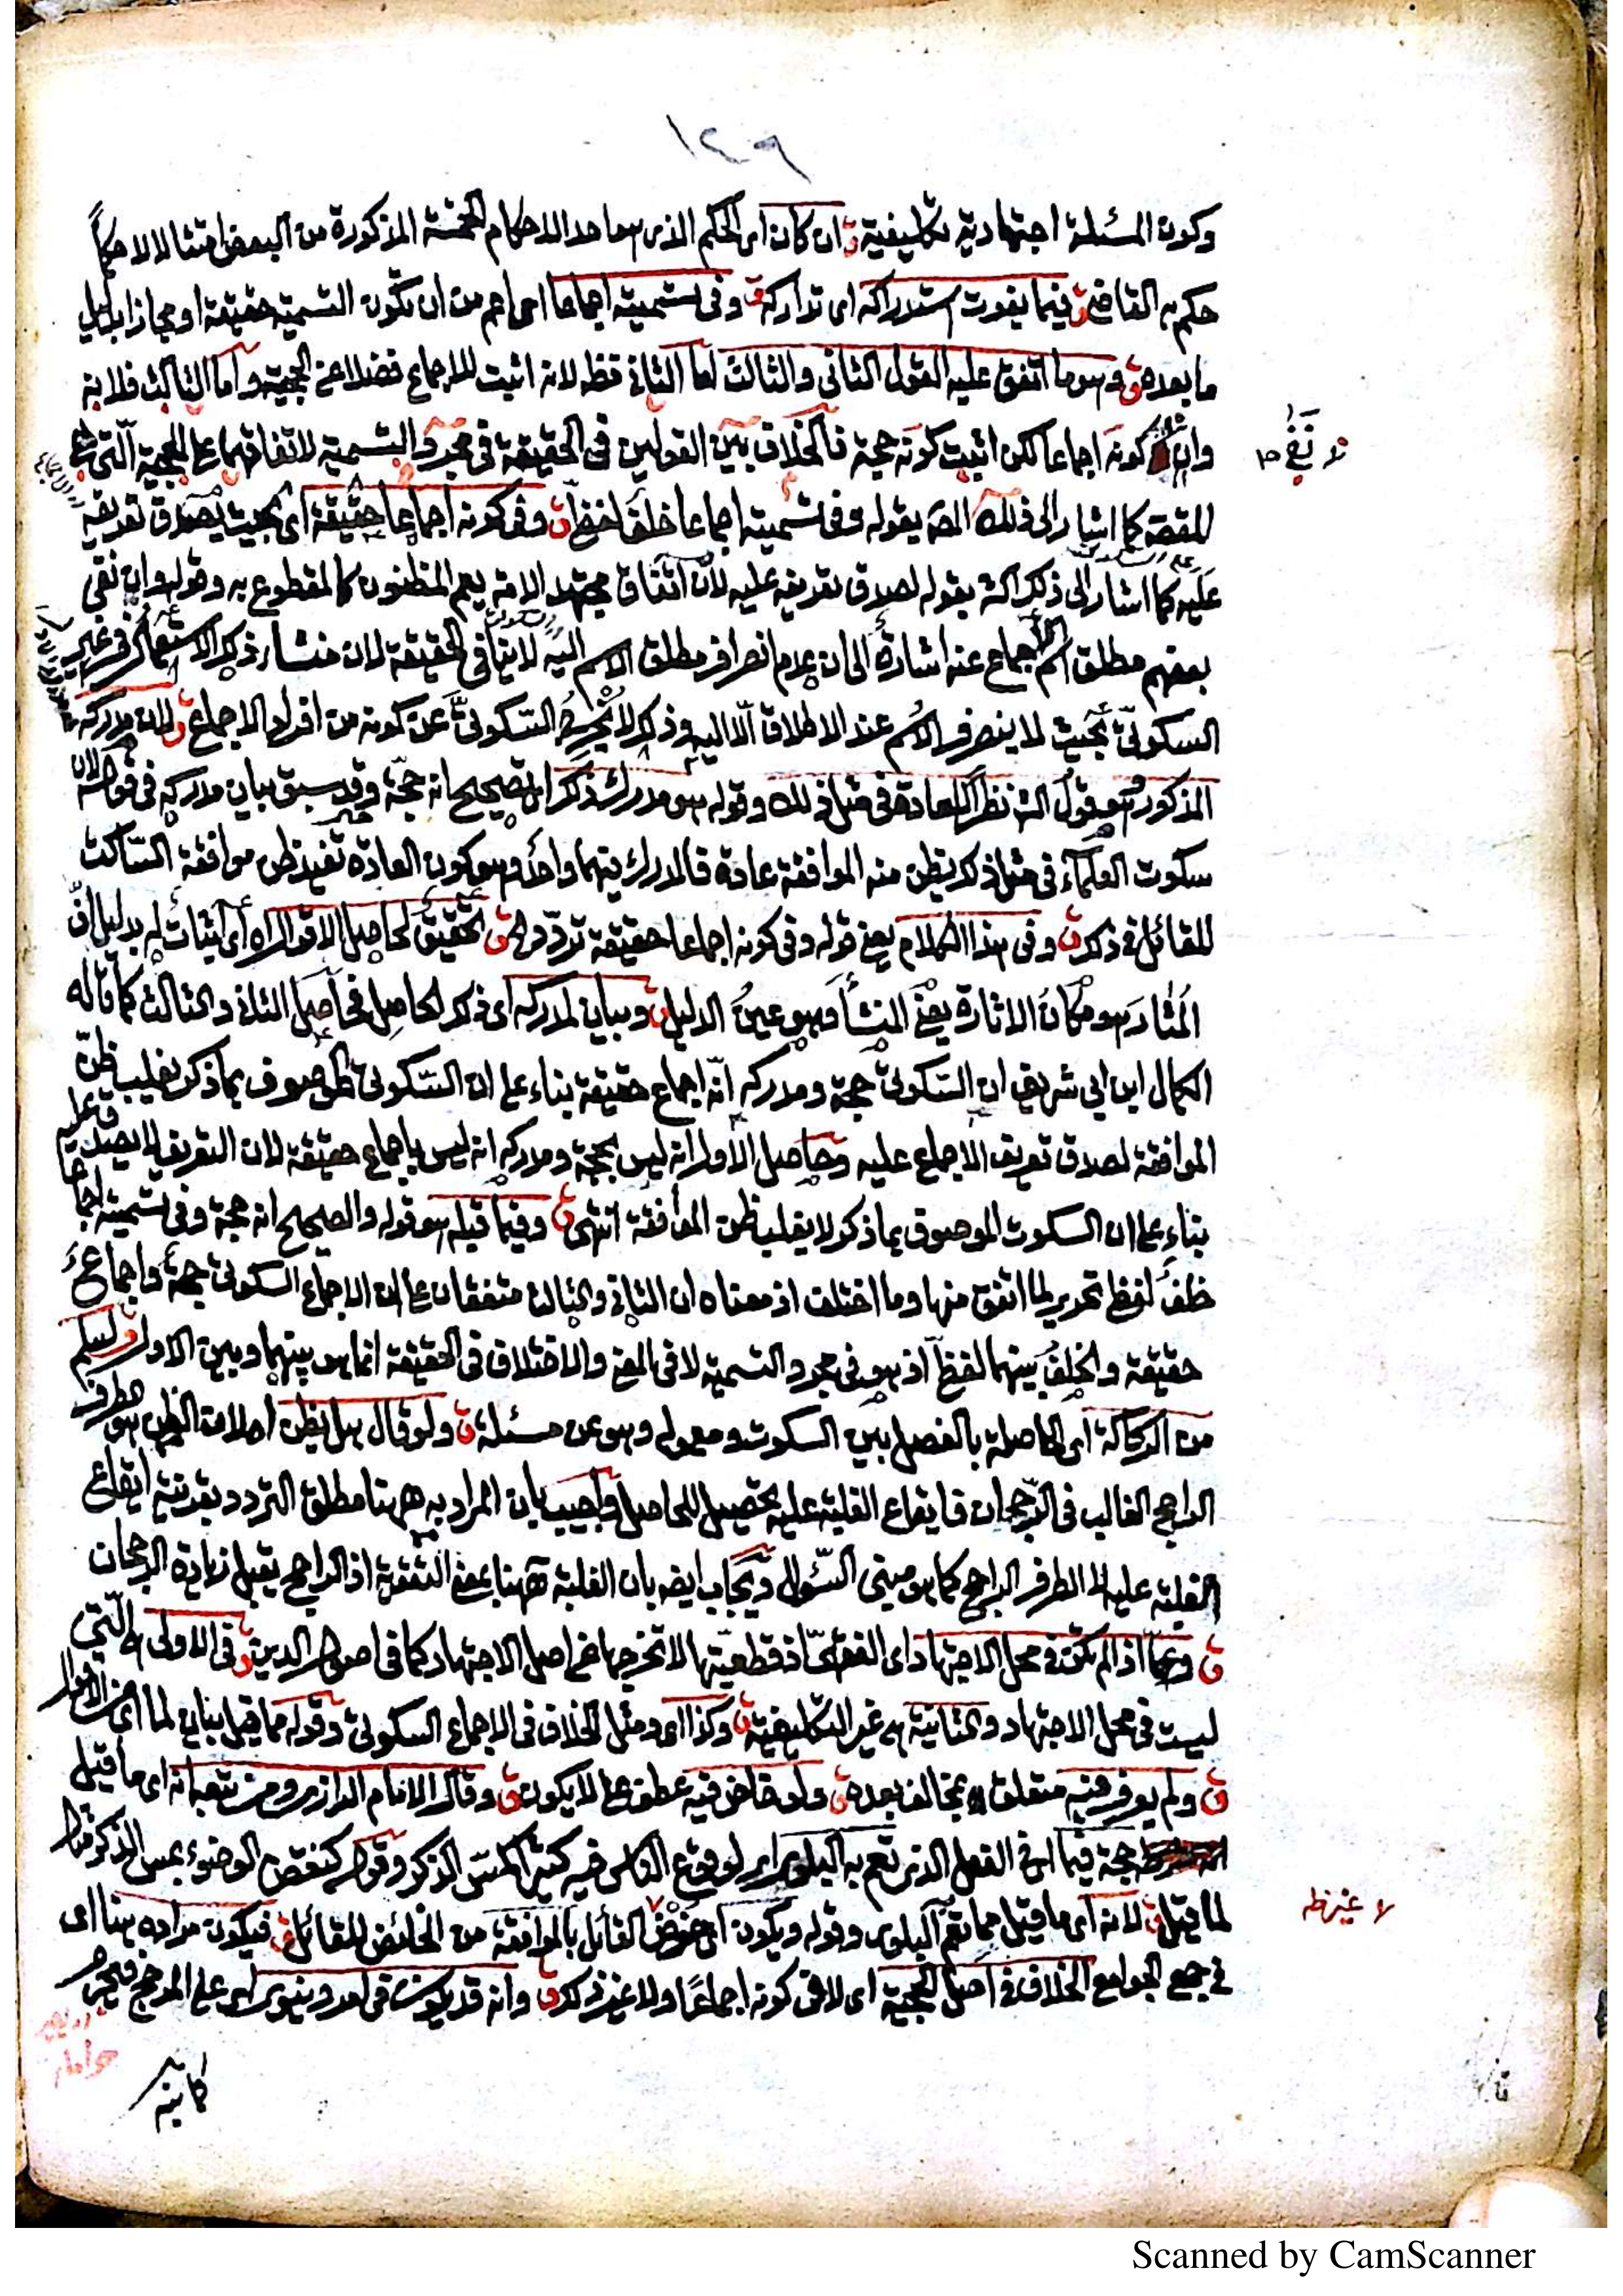 ١٢٩
وكون المسئلة اجتهادية تكليفية ق ان كان اى الحكم الذى هو احد الاحكام الخمسة المذكورة من البعض امتثالا لا حكماً
حكم به القاضى ق فيما يفوت استدراكه اى تداركه ق وفى تسميته اجماعا اى اعم من ان تكون التسمية حقيقة او مجازا بدليل
ما بعده ق وهو ما اتفق عليه القول الثانى والثالث اما الثانى فظ لانه اثبت للاجماع فضلا عن الحجية واما الثالث فلانه
وان كونه اجماعا لكن اثبت كونه حجة فالخلاف بين القولين فى الحقيقة فى مجرد التسمية لاتفاقهما على الحجية التى هى
نفى
المقصة كما اشار الى ذلك المصـ بقوله وفى تسميته اجماعا خلف لفظى ق وفى كونه اجماعا حقيقة اى بحيث يصدق تعريفه
عليه كما اشار الى ذلك الشـ بقوله لصدق تعريفه عليه لان اتفاق مجتهد الامة يعم المظنون كالمقطوع به وقوله وان نفى
بعضهم مطلق اسم الاجماع عنه اشارة الى ان عدم انصراف مطلق الاسم اليه لا ينافى الحقيقة لان منشاء ذلك الاستعمال فى غير
السكوتى بحيث لا ينصرف الاسم عند الاطلاق الا اليه وذلك لا يخرج السكوتى عن كونه من افراد الاجماع ق لان مدركه
المذكور هو قول الشـ نظرا للعادة فى مثل ذلك وقوله هو مدرك ذكر اى تصحيح انه حجة وقد سبق بيان مدركه فى قوله لان
سكوت العلماء فى مثل ذلك يظن منه الموافقة عادة فالمدرك بينهما واحد وهو كون العادة تفيد ظن موافقة الساكت
للقائل فى ذلك ق وفى هذا الكلام يعنى قوله وفى كونه اجماعا حقيقة تردد ق تحقيق لحاصل الاقوال اى اثبات له بدليل ان
المثار هو مكان الاثارة يعنى المنشأ وهو عين الدليل ق وبيان لمدركه اى ذكر الحاصل فحاصل الثانى والثالث كما قاله
الكمال ابن ابى شريف ان السكوتى حجة ومدركه انه اجماع حقيقة بناء على ان السكوتى الموصوف بما ذكر يغلب ظن
الموافقة لصدق تعريف الاجماع عليه وحاصل الاول انه ليس بحجة ومدركه انه ليس باجماع حقيقة لان التعريف لا يصدق عليه
بناء على ان السكوت الموصوف بما ذكر لا يغلب ظن الموافقة انتهى ق وفيما قبله هو قوله والصحيح انه حجة وفى تسميته اجماعا
خلف لفظى تحرير لما اتفق منها وما اختلف اذ معناه ان الثانى والثالث متفقان على ان الاجماع السكوتى حجة واجماع
حقيقة والخلف بينهما لفظى اذ هو فى مجرد التسمية لا فى المعنى والاختلاف فى الحقيقة انما هو بينهما وبين الاول ق لسلم
من الركاكة اى الحاصلة بالفصل بين السكوت ومعموله وهو عن مسئلة ق ولو قال هل يظن اصلاحة الظن هو الطرف
الراجح الغالب فى الرجحان فايقاع الغلبة عليه تحصيل للحاصل واجيب بان المراد به ههنا مطلق التردد بقرينة ايقاع
الغلبة عليه لا الطرف الراجح كما هو مبنى السؤال ويجاب ايضا بان الغلبة ههنا بمعنى التقوية اذ الراجح يقبل زيادة الرجحان
ق وعما اذا لم تكن فى محل الاجتهاد اى الفقهى اذ قطعيتها لا تخرجها عن اصل الاجتهاد كما فى اصول الدين ق فى الاولى هى التى
ليست فى محل الاجتهاد والثانية هى غير التكليفية ق وكذا اى ومثل الخلاف فى الاجماع السكوتى وقوله مما قيل بيان لما اى من الاقوال
ق ولم يعرف فيه متعلق بمخالف بعده ق ولو خاض فيه عطف على لا يكون ق وقال الامام الرازى ومن تبعه انه اى ما قيل
حجة فيما اى فى الفعل الذى تعم به البلوى اى لوقوع الناس فيه كثيرا كمس الذكر وقوله كنقض الوضوء بمس الذكر مثال
لما قيل ق لانه اى ما قيل مما تعم البلوى وقوله ويكون اى خوض القائل بالموافقة من الخائض للقائل ق فيكون مراده هنا اى
لا غير ظ
فى جمع الجوامع الخلاف فى اصل الحجية اى لا فى كونه اجماعا ولا غير ذلك ق وانه قد يكون فى امر دنيوى اى على المرجح
كاينه
Scanned by CamScanner